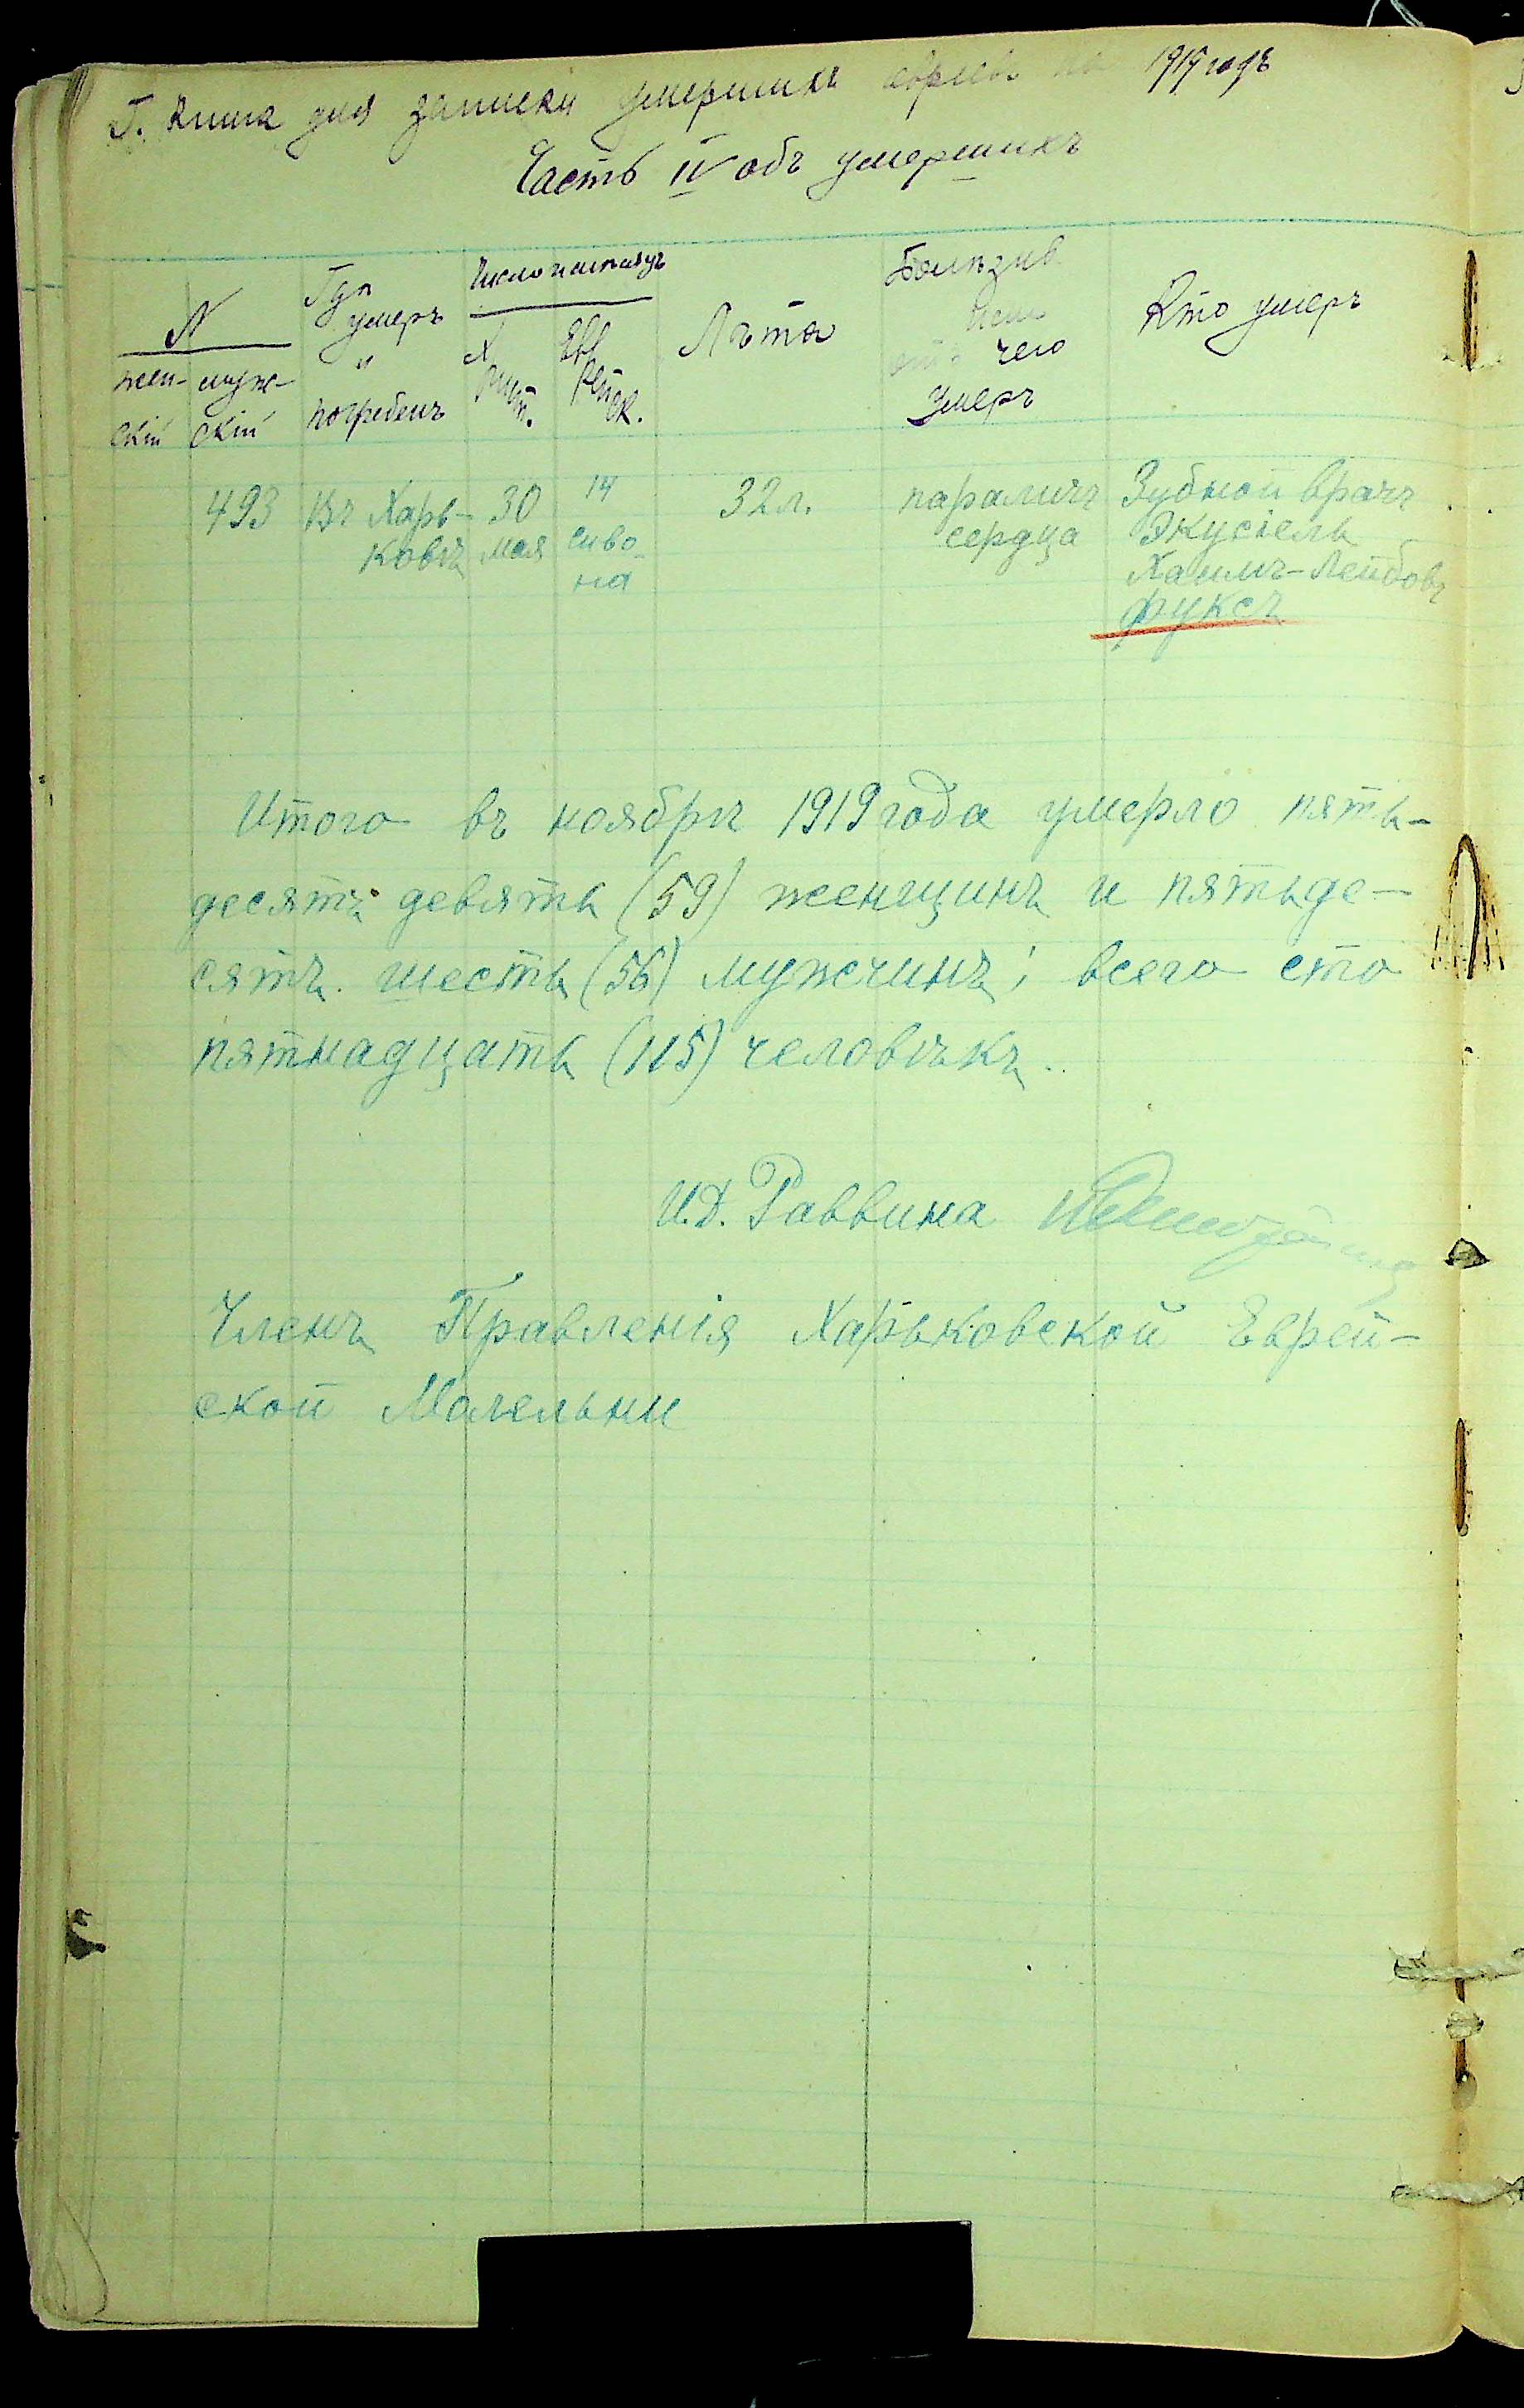 Г. Книга для записки умершихъ евреевъ на 1919 годъ
Часть IV объ умершихъ
N
жен-
скій
муж-
скій
Гдѣ
умеръ
и
погребенъ
Число и мѣсяцъ
Христ.
Еврейск.
Лѣта
Болѣзнь
или
отъ чего
умеръ
Кто умеръ
493
Въ Харь-
ковѣ
30
мая
14
сиво-
на
32 л.
параличъ
сердца
Зубной врачъ
Экусіель
Хаимъ-Лейбовъ
Фуксъ
Итого въ ноябрѣ 1919 года умерло пять-
десятъ девять (59) женщинъ и пятьде-
сятъ шесть (56) мужчинъ; всего сто
пятнадцать (115) человѣкъ.
И.Д. Раввина
Членъ Правленія Харьковской Еврей-
ской Молельни